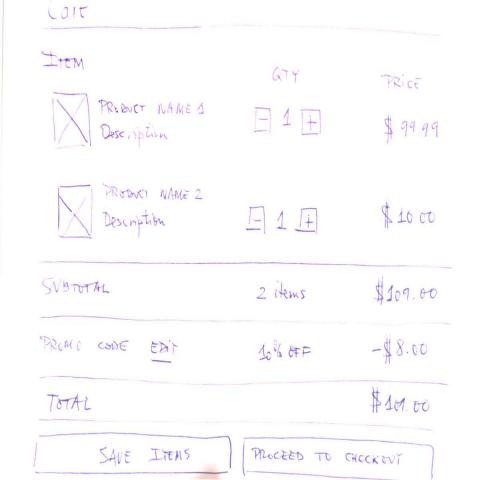 Cart
ITEM QTY PRICE
PRODUCT NAME 1
Description
- 1 + $99.99
PRODUCT NAME 2
Description
- 1 + $10.00
SUBTOTAL 2 items $109.00
PROMO CODE EDIT 10% OFF -$8.00
TOTAL $101.00
SAVE ITEMS PROCEED TO CHECKOUT